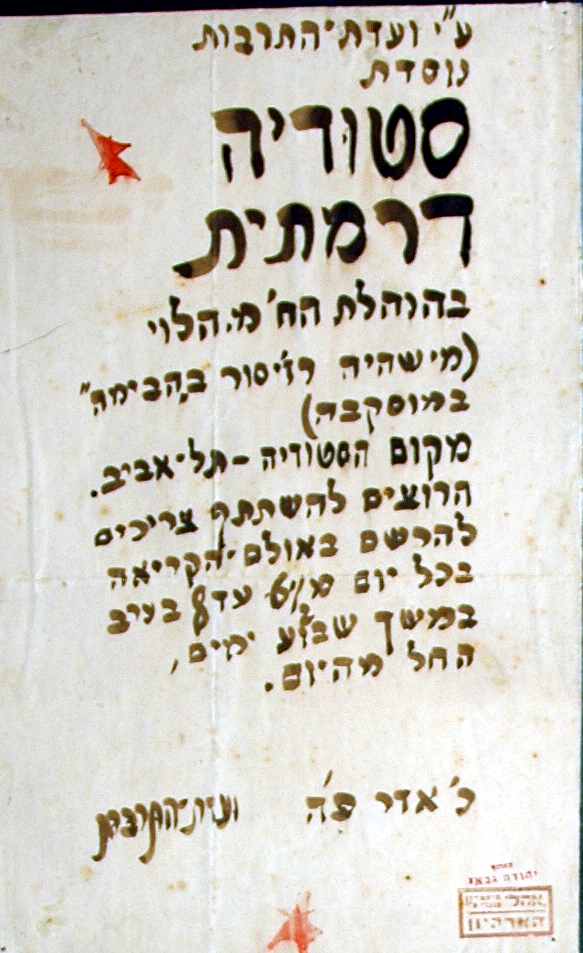 ע"י ועדת-התרבות
נוסדת
סטודיה
דרמתית
בהנהלת הח' מ. הלוי
(מי שהיה רז'יסור ב"הבימה"
במוסקבה)
מקום הסטודיה – תל-אביב.
הרוצים להשתתף צריכים
להרשם באולם-הקריאה
בכל יום עד 8 בערב
במשך שבוע ימים,
החל מהיום.
כ' אדר פ'ה ועדת-התרבות
יהודה גבאי
הארכיון